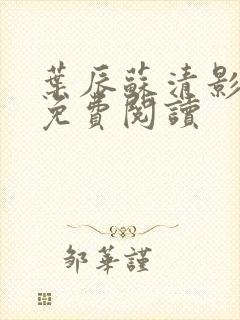 葉辰蘇清影
免費閱讀
鄒華謹